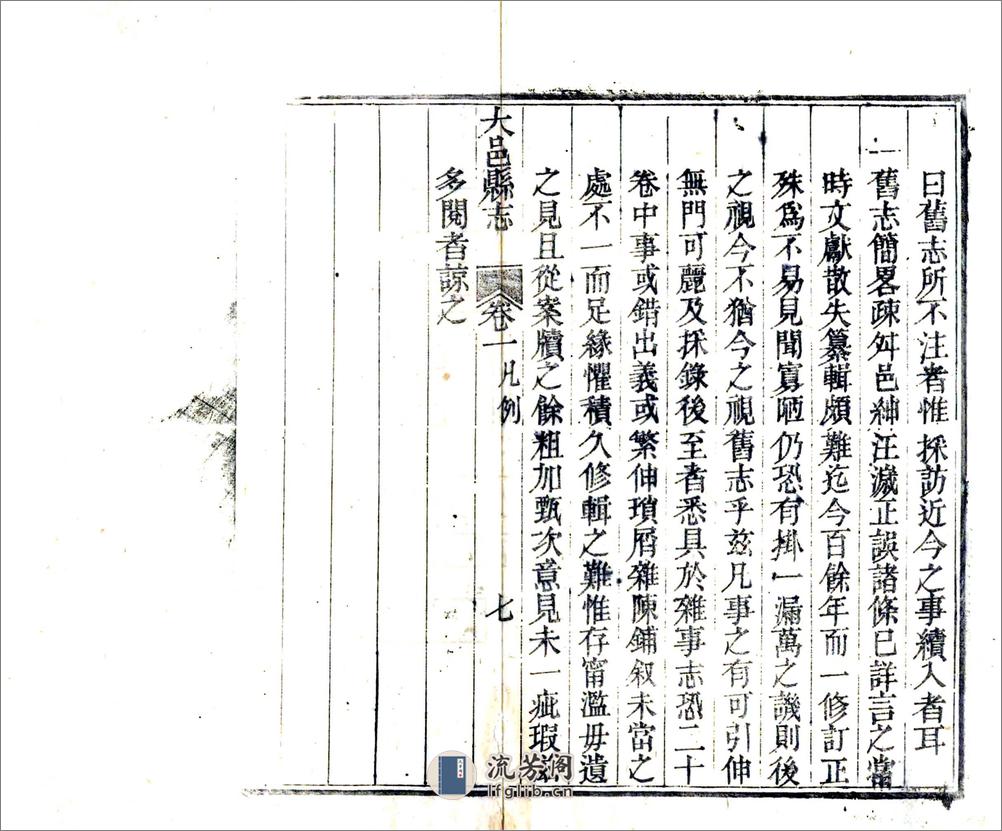 曰舊志所不注者惟採訪近今之事續入者耳
一舊志簡畧疎舛邑紳汪濊正誤諸條已詳言之當
時文獻散失纂輯頗難迄今百餘年而一修訂正
殊爲不易見聞寡陋仍恐有掛一漏萬之譏則後
之視今不猶今之視舊志乎玆凡事之有可引伸
無門可麗及採錄後至者悉具於雜事志恐二十
卷中事或錯出義或繁伸瑣屑雜陳鋪叙未當之
處不一而足緣懼積久修輯之難惟存甯濫毋遺
之見且從案牘之餘粗加甄次意見未一疵瑕
多閱者諒之
大邑縣志 卷一凡例 七
流芳阁
lfglib.cn